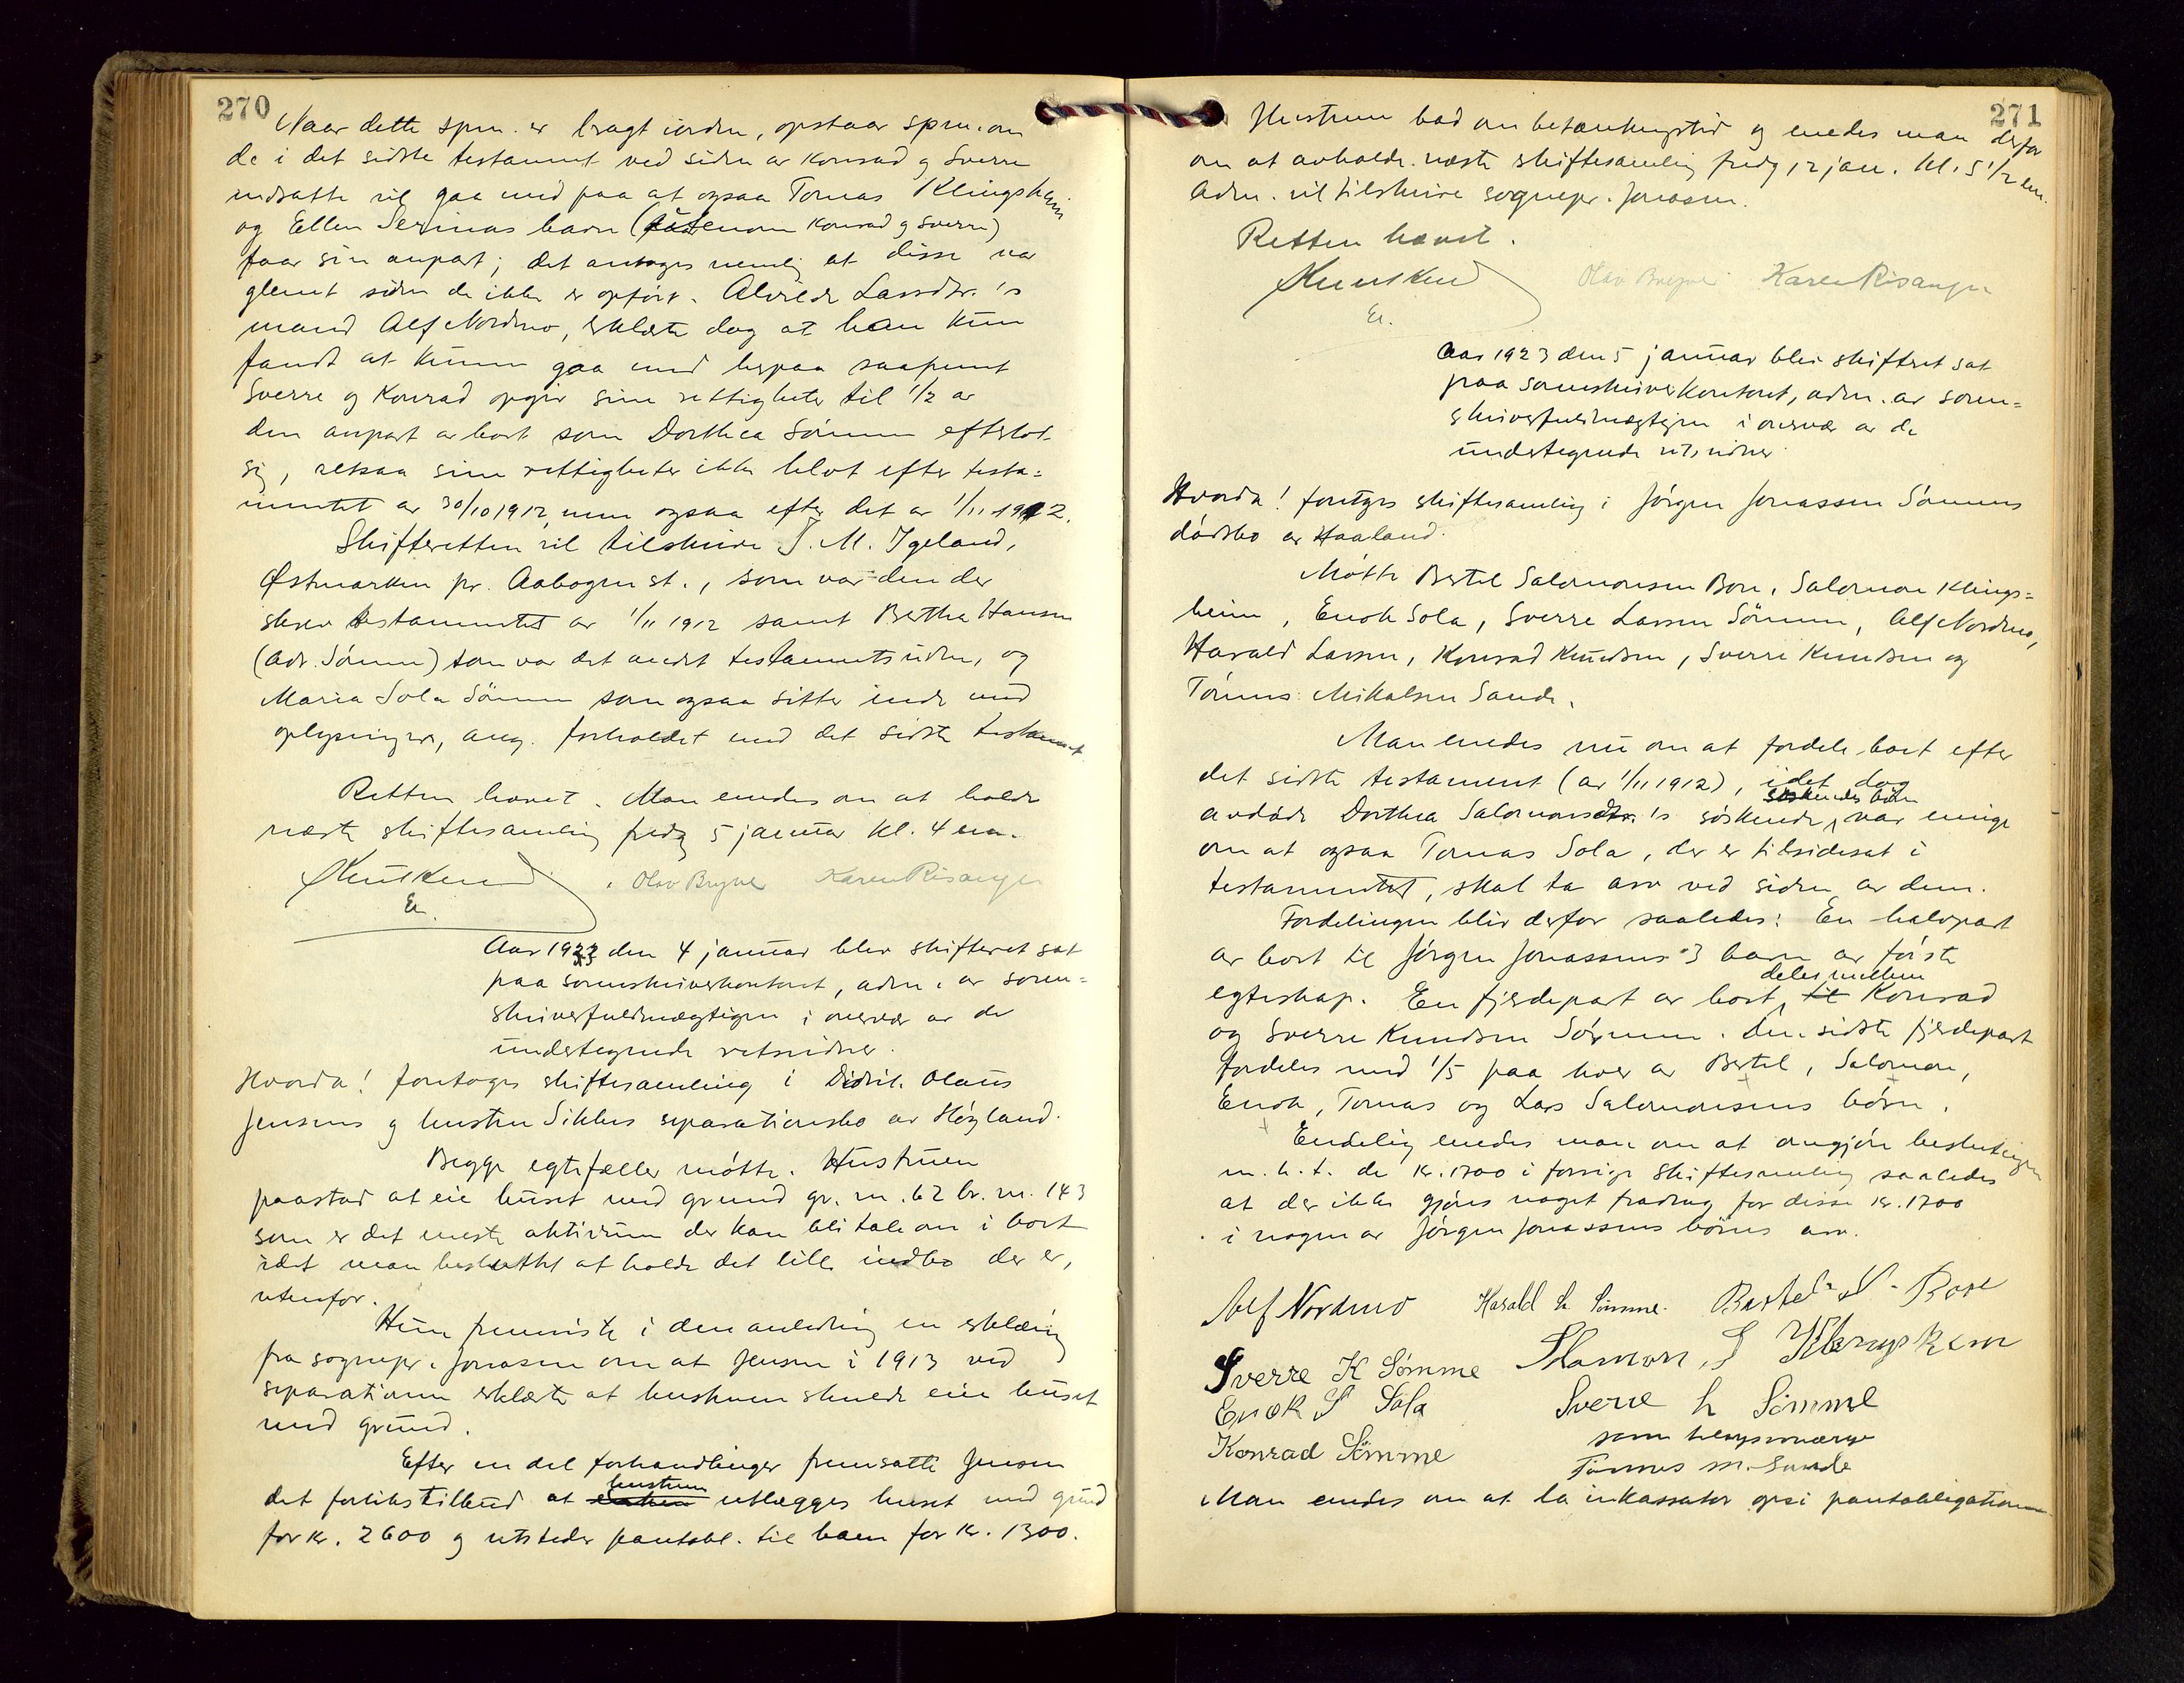 270
Naar dette spm. er bragt iorden, opstaar spm. om
de i det sidste testament ved siden av Konrad og Sverre
indsatte vil gaa med paa at ogsaa Tomas Klingsheim
og Ellen Serinas barn (utenom Konrad og Sverre)
faar sin anpart; det antages nemlig at disse var
glemt siden de ikke er opført. Alvilde Larsdtr.'s
mand Alf Nordmo, erklærte dog at han kun
fandt at kunne gaa med herpaa saafremt
Sverre og Konrad opgir sine rettigheter til 1/2 av
den anpart av boet som Dorthea Sømme efterlot
sig, altsaa sine rettigheter ikke blot efter testa=
mentet av 30/10 1912 men ogsaa efter det av 1/11 1912.
Skifteretten vil tilskrive J. M. Igeland,
Østmarken pr. Aabogen st., som var den der
skrev testamentet av 1/11 1912 samt Bertha Hansen
(adr. Sømme) som var det andet testamentsvidne, og
Maria Sola Sømme som ogsaa sitter inde med
oplysninger, ang. forholdet med det sidste testament
Retten hævet. Man enedes om at holde
næste skiftesamling fredag 5 januar kl. 4 em.
Olav Bryne Karen Risanger
Aar 1923 den 4 januar blev skifteret sat
paa sorenskriverkontoret, adm. av soren=
skriverfuldmægtigen i overvær av de
undertegnede retsvidner.
Hvorda! foretages skiftesamling i Didrik Olaus
Jensens og hustru Sikkes separationsbo av Høgland.
Begge egtefæller møtte. Hustruen
paastod at eie huset med grund gr. nr. 62 br. nr. 143
som er det meste aktivum der kan bli tale om i boet
idet man besluttet at holde det lille indbo der er,
utenfor.
Hun fremviste i den anledning en erklæring
fra sognepr. Jonassen om at Jensen i 1913 ved
separationen erklærte at hustruen skulde eie huset
med grund.
Efter en del forhandlinger fremsatte Jensen
det forlikstilbud at hustruen utlægges huset med grund
for kr. 2600 og utsteder pantobl. til ham for kr. 1300.
271
Hustruen bad om betænkningstid og enedes man derfor
om at avholde næste skiftesamling fredag 12 jan. kl. 5 1/2 em.
Adm. vil tilskrive sognepr. Jonassen.
Retten hævet.
Olav Bryne Karen Risanger
Aar 1923 den 5 januar blev skifteret sat
paa sorenskriverkontoret, adm. av soren=
skriverfuldmægtigen i overvær av de
undertegnede retsvidner
Hvorda! foretages skiftesamling i Jørgen Jonassen Sømmes
dødsbo av Haaland.
Møtte Bertel Salomonsen Bore, Salomon Klings=
heim, Enok Sola, Sverre Larsen Sømme, Alf Nordmo,
Harald Larsen, Konrad Knudsen, Sverre Knudsen og
Tønnes Mikalsen Sande.
Man enedes nu om at fordele boet efter
det sidste testament (av 1/11 1912), idet dog
avdøde Dorthea Salomonsdtr.'s søskende, søskendes børn var enige
om at ogsaa Tomas Sola, der er tilsidesat i
testamentet, skal ta arv ved siden av dem.
Fordelingen blir derfor saaledes: En halvpart
av boet til Jørgen Jonassens 3 barn av første
egteskap. En fjerdepart av boet deles mellem Konrad
og Sverre Knudsen Sømme. Den sidste fjerdepart
fordeles med 1/5 paa hver av Bertel, Salomon,
Enok, Tomas og Lars Salomonsens børn.
Endelig enedes man om at omgjøre beslutningen
m.h.t. de kr. 1700 i forrige skiftesamling saaledes
at der ikke gjøres noget fradrag for disse kr. 1700
i nogen av Jørgen Jonassens børns arv.
Alf Nordmo Harald L Sømme. Bertel S. Bore
Sverre K Sømme Slamon S Klingshem
Enok S Sola Sverre L Sømme
Konrad Sømme som tilsynsværge
Tønnes M. Sande
Man enedes om at la inkassator opsi pantobligationen